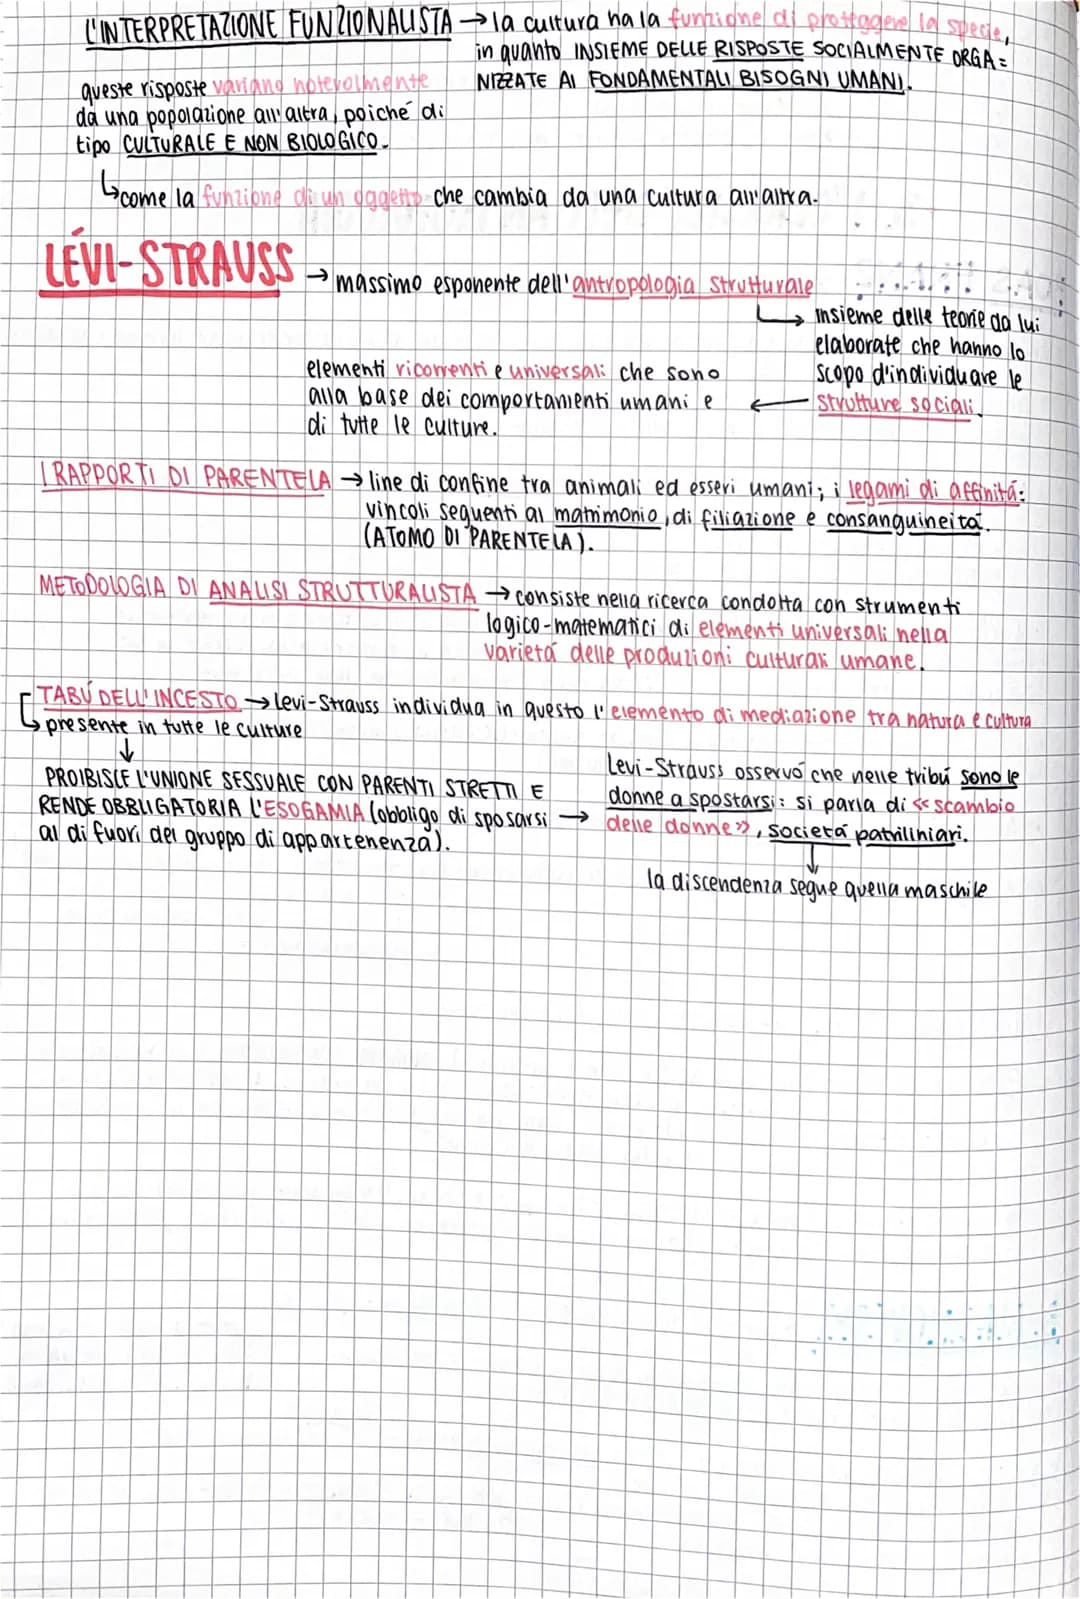 L'INTERPRETAZIONE FUNZIONALISTA → la cultura ha la funzione di prottaggere la specie,
in quanto INSIEME DELLE RISPOSTE SOCIALMENTE ORGA=
NIZZATE AI FONDAMENTALI BISOGNI UMANI.
queste risposte variano notevolmente
da una popolazione all'altra, poiché di
tipo CULTURALE E NON BIOLOGICO.
↳ come la funzione di un oggetto che cambia da una cultura all'altra.
LÉVI-STRAUSS → massimo esponente dell'antropologia strutturale
↳ insieme delle teorie da lui
elaborate che hanno lo
scopo d'individuare le
strutture sociali.
elementi ricorrenti e universali che sono
alla base dei comportamenti umani e ←
di tutte le culture.
I RAPPORTI DI PARENTELA → line di confine tra animali ed esseri umani; i legami di affinitá:
vincoli seguenti al matrimonio, di filiazione e consanguineitá.
(ATOMO DI PARENTELA).
METODOLOGIA DI ANALISI STRUTTURALISTA → consiste nella ricerca condotta con strumenti
logico-matematici di elementi universali nella
varietá delle produzioni culturali umane.
TABÚ DELL'INCESTO → Levi-Strauss individua in questo l'elemento di mediazione tra natura e cultura
↳ presente in tutte le culture
↓
PROIBISCE L'UNIONE SESSUALE CON PARENTI STRETTI E
RENDE OBBLIGATORIA L'ESOGAMIA (obbligo di sposarsi →
al di fuori del gruppo di appartenenza).
Levi-Strauss osservó che nelle tribú sono le
donne a spostarsi: si parla di «scambio
delle donne», societá patriliniari.
↓
la discendenza segue quella maschile